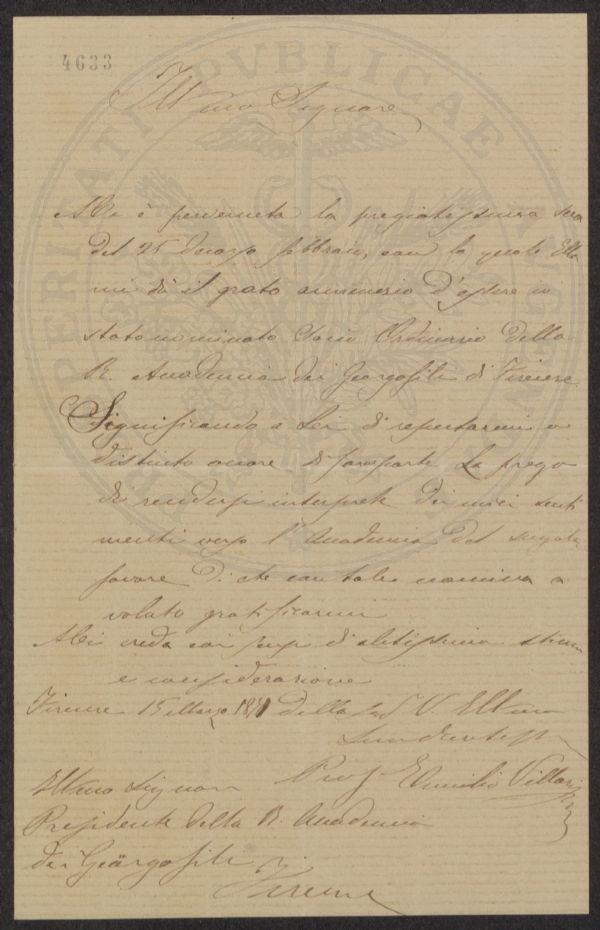 4633
PROSPERITATI PVBLICAE AVGENDAE
Illmo Signore
Mi è pervenuta la pregiatissima sua
del 25 scorso febbraio, con la quale Ella
mi dà il grato annunzio d'essere io
stato nominato Socio Ordinario della
R. Accademia dei Georgofili di Firenze
Significando a Lei di reputarmi a
distinto onore di farne parte La prego
di rendersi interprete dei miei senti
menti verso l'Accademia del
favore di che con tale nomina a
voluto gratificarmi
Mi creda coi sensi di altissima stima
e considerazione
Firenze 15 Marzo 18 della S. V. Illma
Prof Emilio Villari
Illmo Signor
Presidente della R. Accademia
dei Geörgofili
Firenze